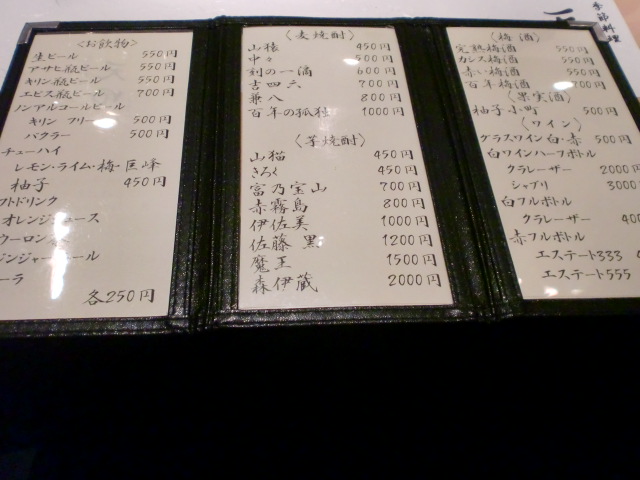 季節料理
〈お飲物〉
生ビール 550円
アサヒ瓶ビール 550円
キリン瓶ビール 550円
エビス瓶ビール 700円
ノンアルコールビール
キリン フリー 500円
バクラー 500円
チューハイ
レモン・ライム・梅・巨峰
柚子 450円
フトドリンク
オレンジュース
ウーロン
ジンジャーエール
ーラ
各250円
〈麦焼酎〉
山猿 450円
中々 500円
刻の一滴 600円
吉四六 700円
兼八 800円
百年の孤独 1000円
〈芋焼酎〉
山猫 450円
きろく 450円
富乃宝山 700円
赤霧島 800円
伊佐美 1000円
佐藤 黒 1200円
魔王 1500円
森伊蔵 2000円
〈梅酒〉
完熟梅酒 550円
カシス梅酒 550円
赤い梅酒 550円
百年梅酒 700円
〈果実酒〉
柚子小町 500円
〈ワイン〉
グラスワイン白・赤 500円
白ワインハーフボトル
クラレーザー 2000円
シャブリ 3000
白フルボトル
クラレーザー 400
赤フルボトル
エステート333
エステート555